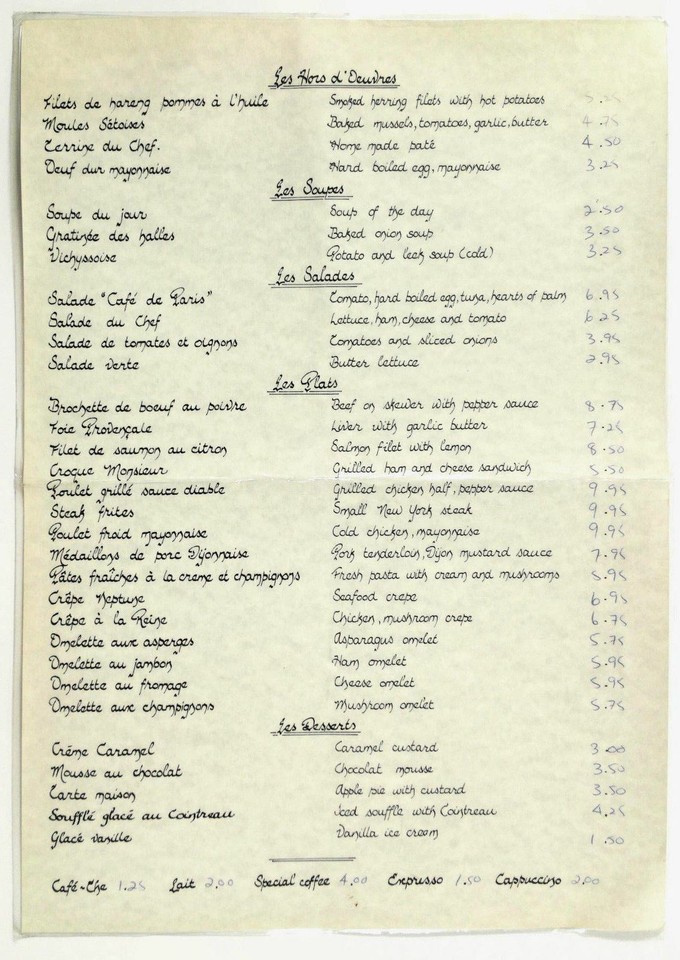 Les Hors d'Oeuvres
Filets de hareng pommes à l'huile Smoked herring filets with hot potatoes 5.25
Moules Sétoises Baked mussels, tomatoes, garlic, butter 4.75
Terrine du Chef. Home made paté 4.50
Oeuf dur mayonnaise Hard boiled egg, mayonnaise 3.25
Les Soupes
Soupe du jour Soup of the day 2.50
Gratinée des halles Baked onion soup 3.50
Vichyssoise Potato and leek soup (cold) 3.25
Les Salades
Salade "Café de Paris" Tomato, hard boiled egg, tuna, hearts of palm 6.95
Salade du Chef Lettuce, ham, cheese and tomato 6.25
Salade de tomates et oignons Tomatoes and sliced onions 3.95
Salade verte Butter lettuce 2.95
Les Plats
Brochette de boeuf au poivre Beef on skewer with pepper sauce 8.75
Foie Provençale Liver with garlic butter 7.25
Filet de saumon au citron Salmon filet with lemon 8.50
Croque Monsieur Grilled ham and cheese sandwich 5.50
Poulet grillé sauce diable Grilled chicken half, pepper sauce 9.95
Steak frites Small New York steak 9.95
Poulet froid mayonnaise Cold chicken, mayonnaise 9.95
Médaillons de porc Dijonnaise Pork tenderloin, Dijon mustard sauce 7.95
Pâtes fraîches à la creme et champignons Fresh pasta with cream and mushrooms 5.95
Crêpe Neptune Seafood crepe 6.95
Crêpe à la Reine Chicken, mushroom crepe 6.75
Omelette aux asperges Asparagus omelet 5.75
Omelette au jambon Ham omelet 5.95
Omelette au fromage Cheese omelet 5.95
Omelette aux champignons Mushroom omelet 5.75
Les Desserts
Crême Caramel Caramel custard 3.00
Mousse au chocolat Chocolat mousse 3.50
Tarte maison Apple pie with custard 3.50
Soufflé glacé au Cointreau iced souffle with Cointreau 4.25
Glacé vanille Vanilla ice cream 1.50
Café-The 1.25 Lait 2.00 Special coffee 4.00 Expresso 1.50 Cappuccino 2.00